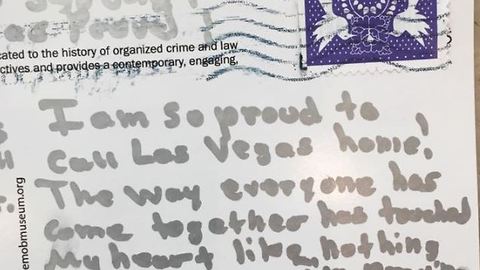 cated to the history of organized crime and law
ctives and provides a contemporary, engaging,
I am so proud to
Call Las Vegas home!
The way everyone has
come together has touched
My heart like nothing
emobmuseum.org